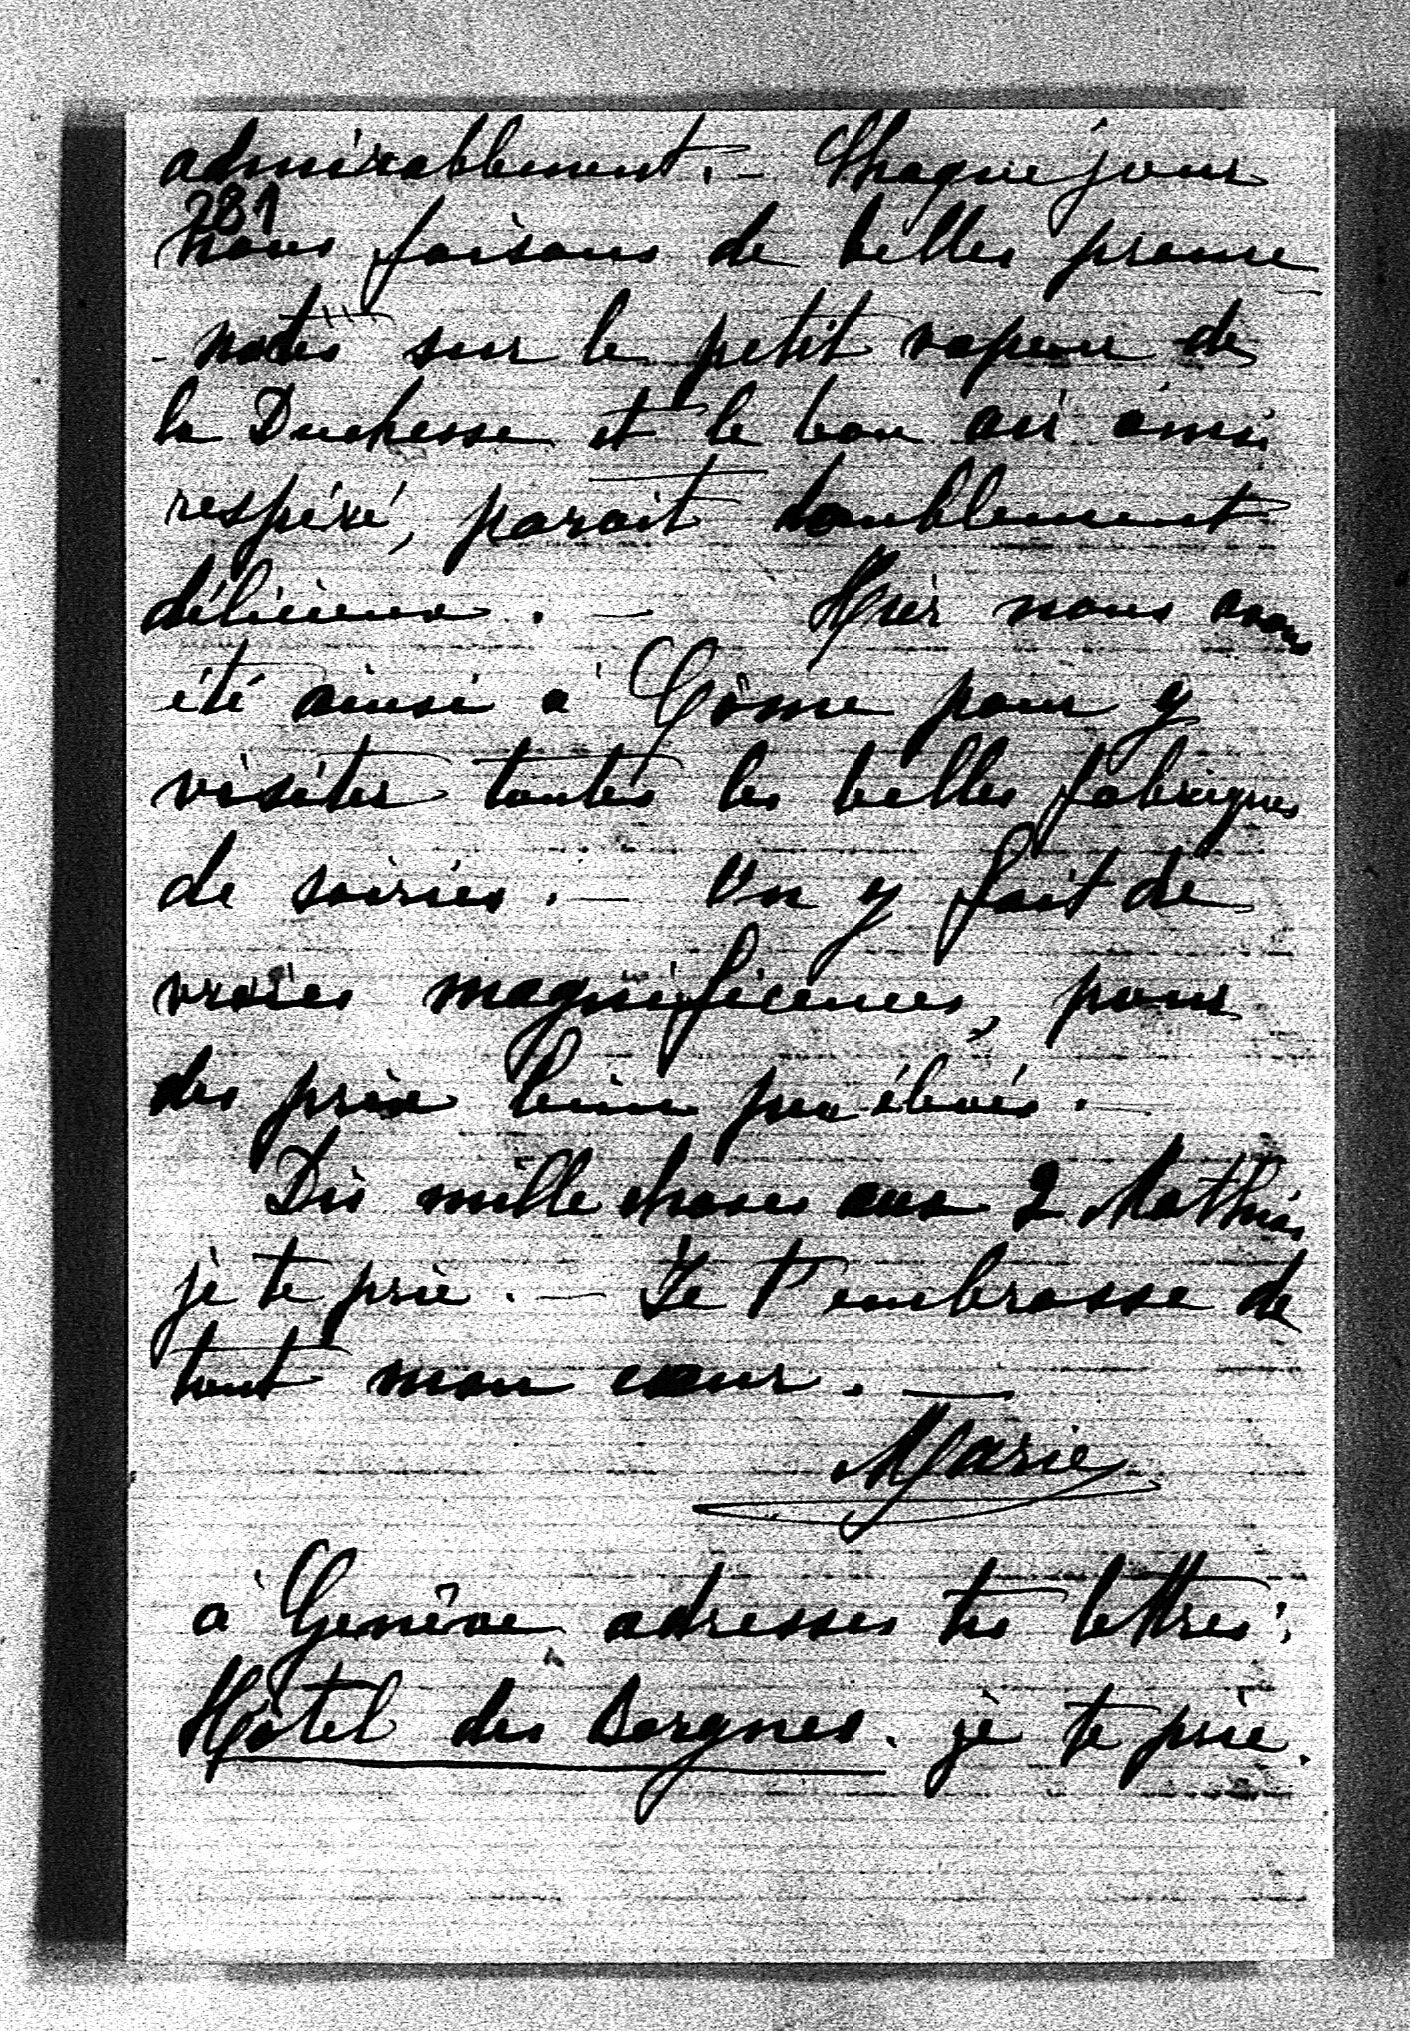 admirablement. — Chaque jour
281
nous faisons de belles prome
- nades sur le petit vapeur de
la Duchesse et le bon air ainsi
respiré, paroit doublement
délicieux. — Hier nous avons
été ainsi à Côme pour y
visiter toutes les belles fabriques
de soiries. — On y fait de
vraies magnificences, pour
des prix bien peu élevés. —
Dis mille choses aux 2 Mathias
je te prie. — Je t'embrasse de
tout mon cœur. —
Marie
à Genève adresses tes lettres:
Hôtel des Bergues. je te prie.